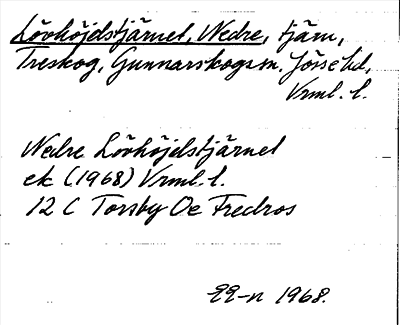 Lövhöjdstjärnet, Nedre, tjärn,
Treskog, Gunnarskogs sn. Jösse hd,
Vrml. l.
Nedre Lövhöjdstjärnet
ek (1968) Vrml. l.
12 C Torsby Oe Fredros
1968.